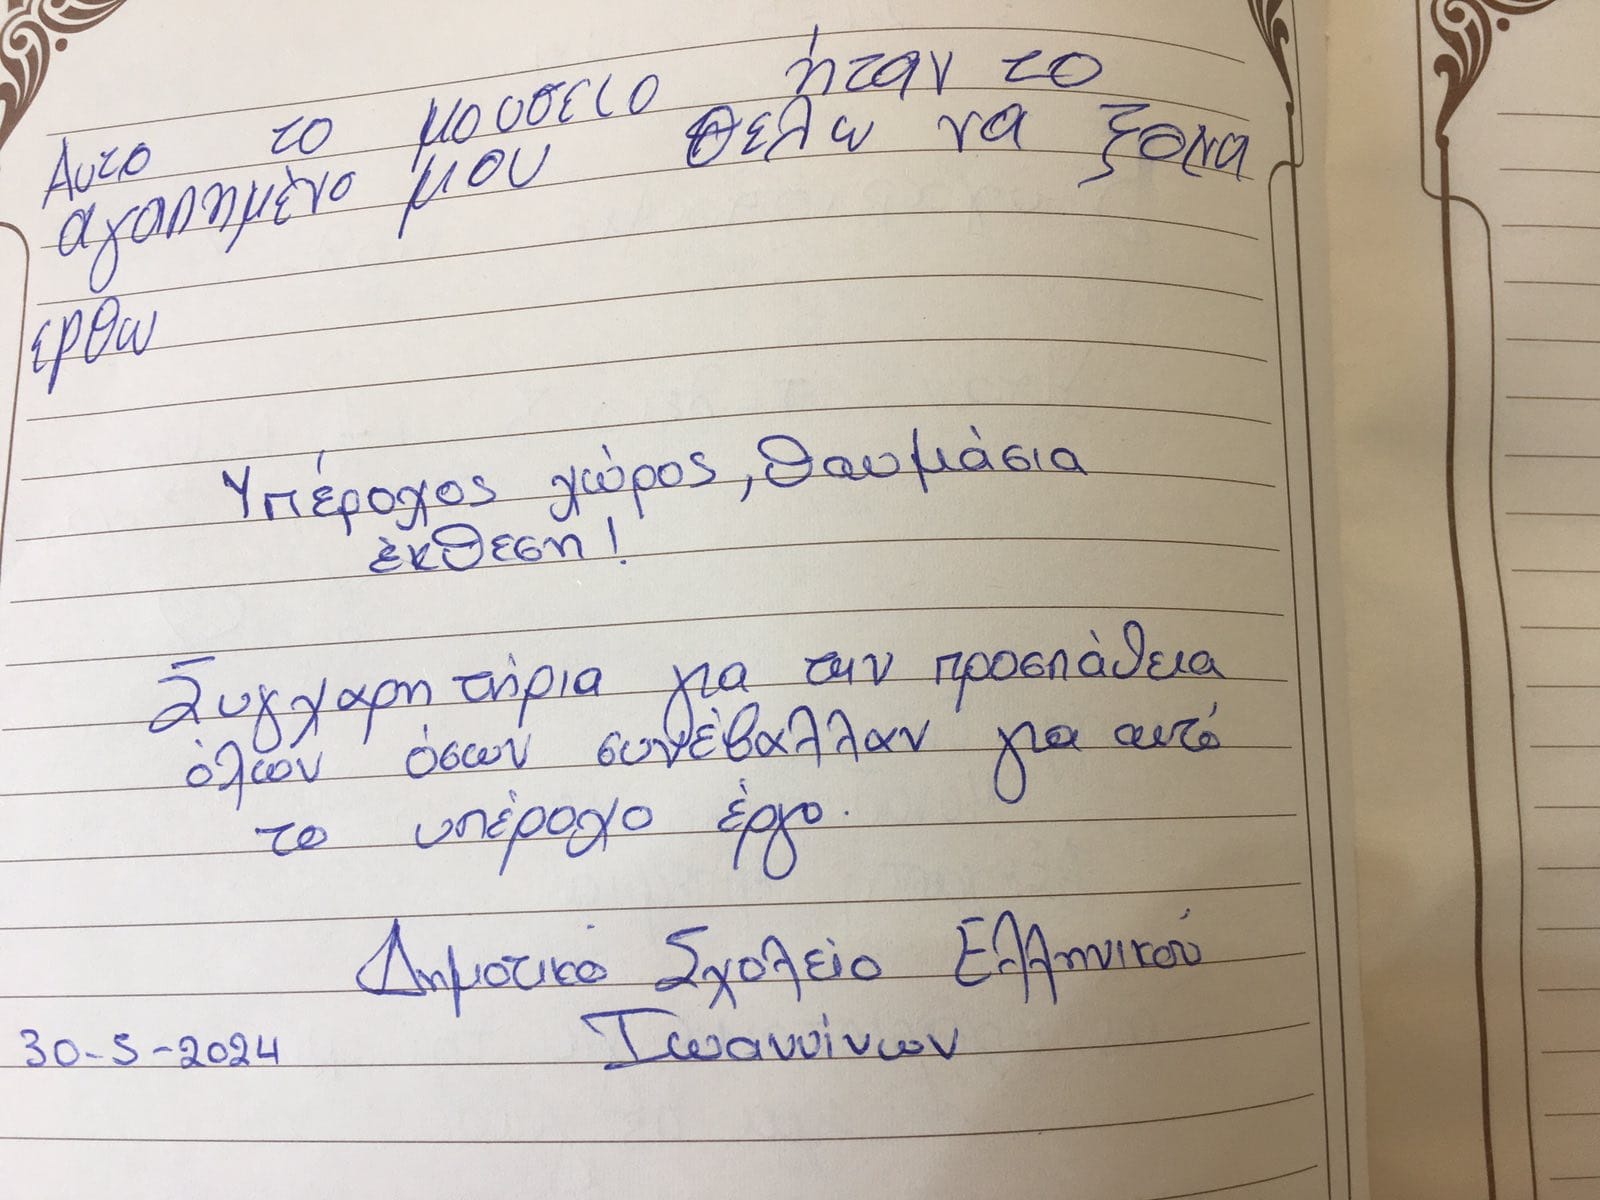 Αυτο το μουσειο ήταν το
αγαπημένο μου θελω να ξανα
ερθω
Υπέροχος χώρος, θαυμάσια
έκθεση!
Συγχαρητήρια για την προσπάθεια
όλων όσων συνέβαλλαν για αυτό
το υπέροχο έργο.
Δημοτικό Σχολείο Ελληνικού
Ιωαννίνων
30-5-2024